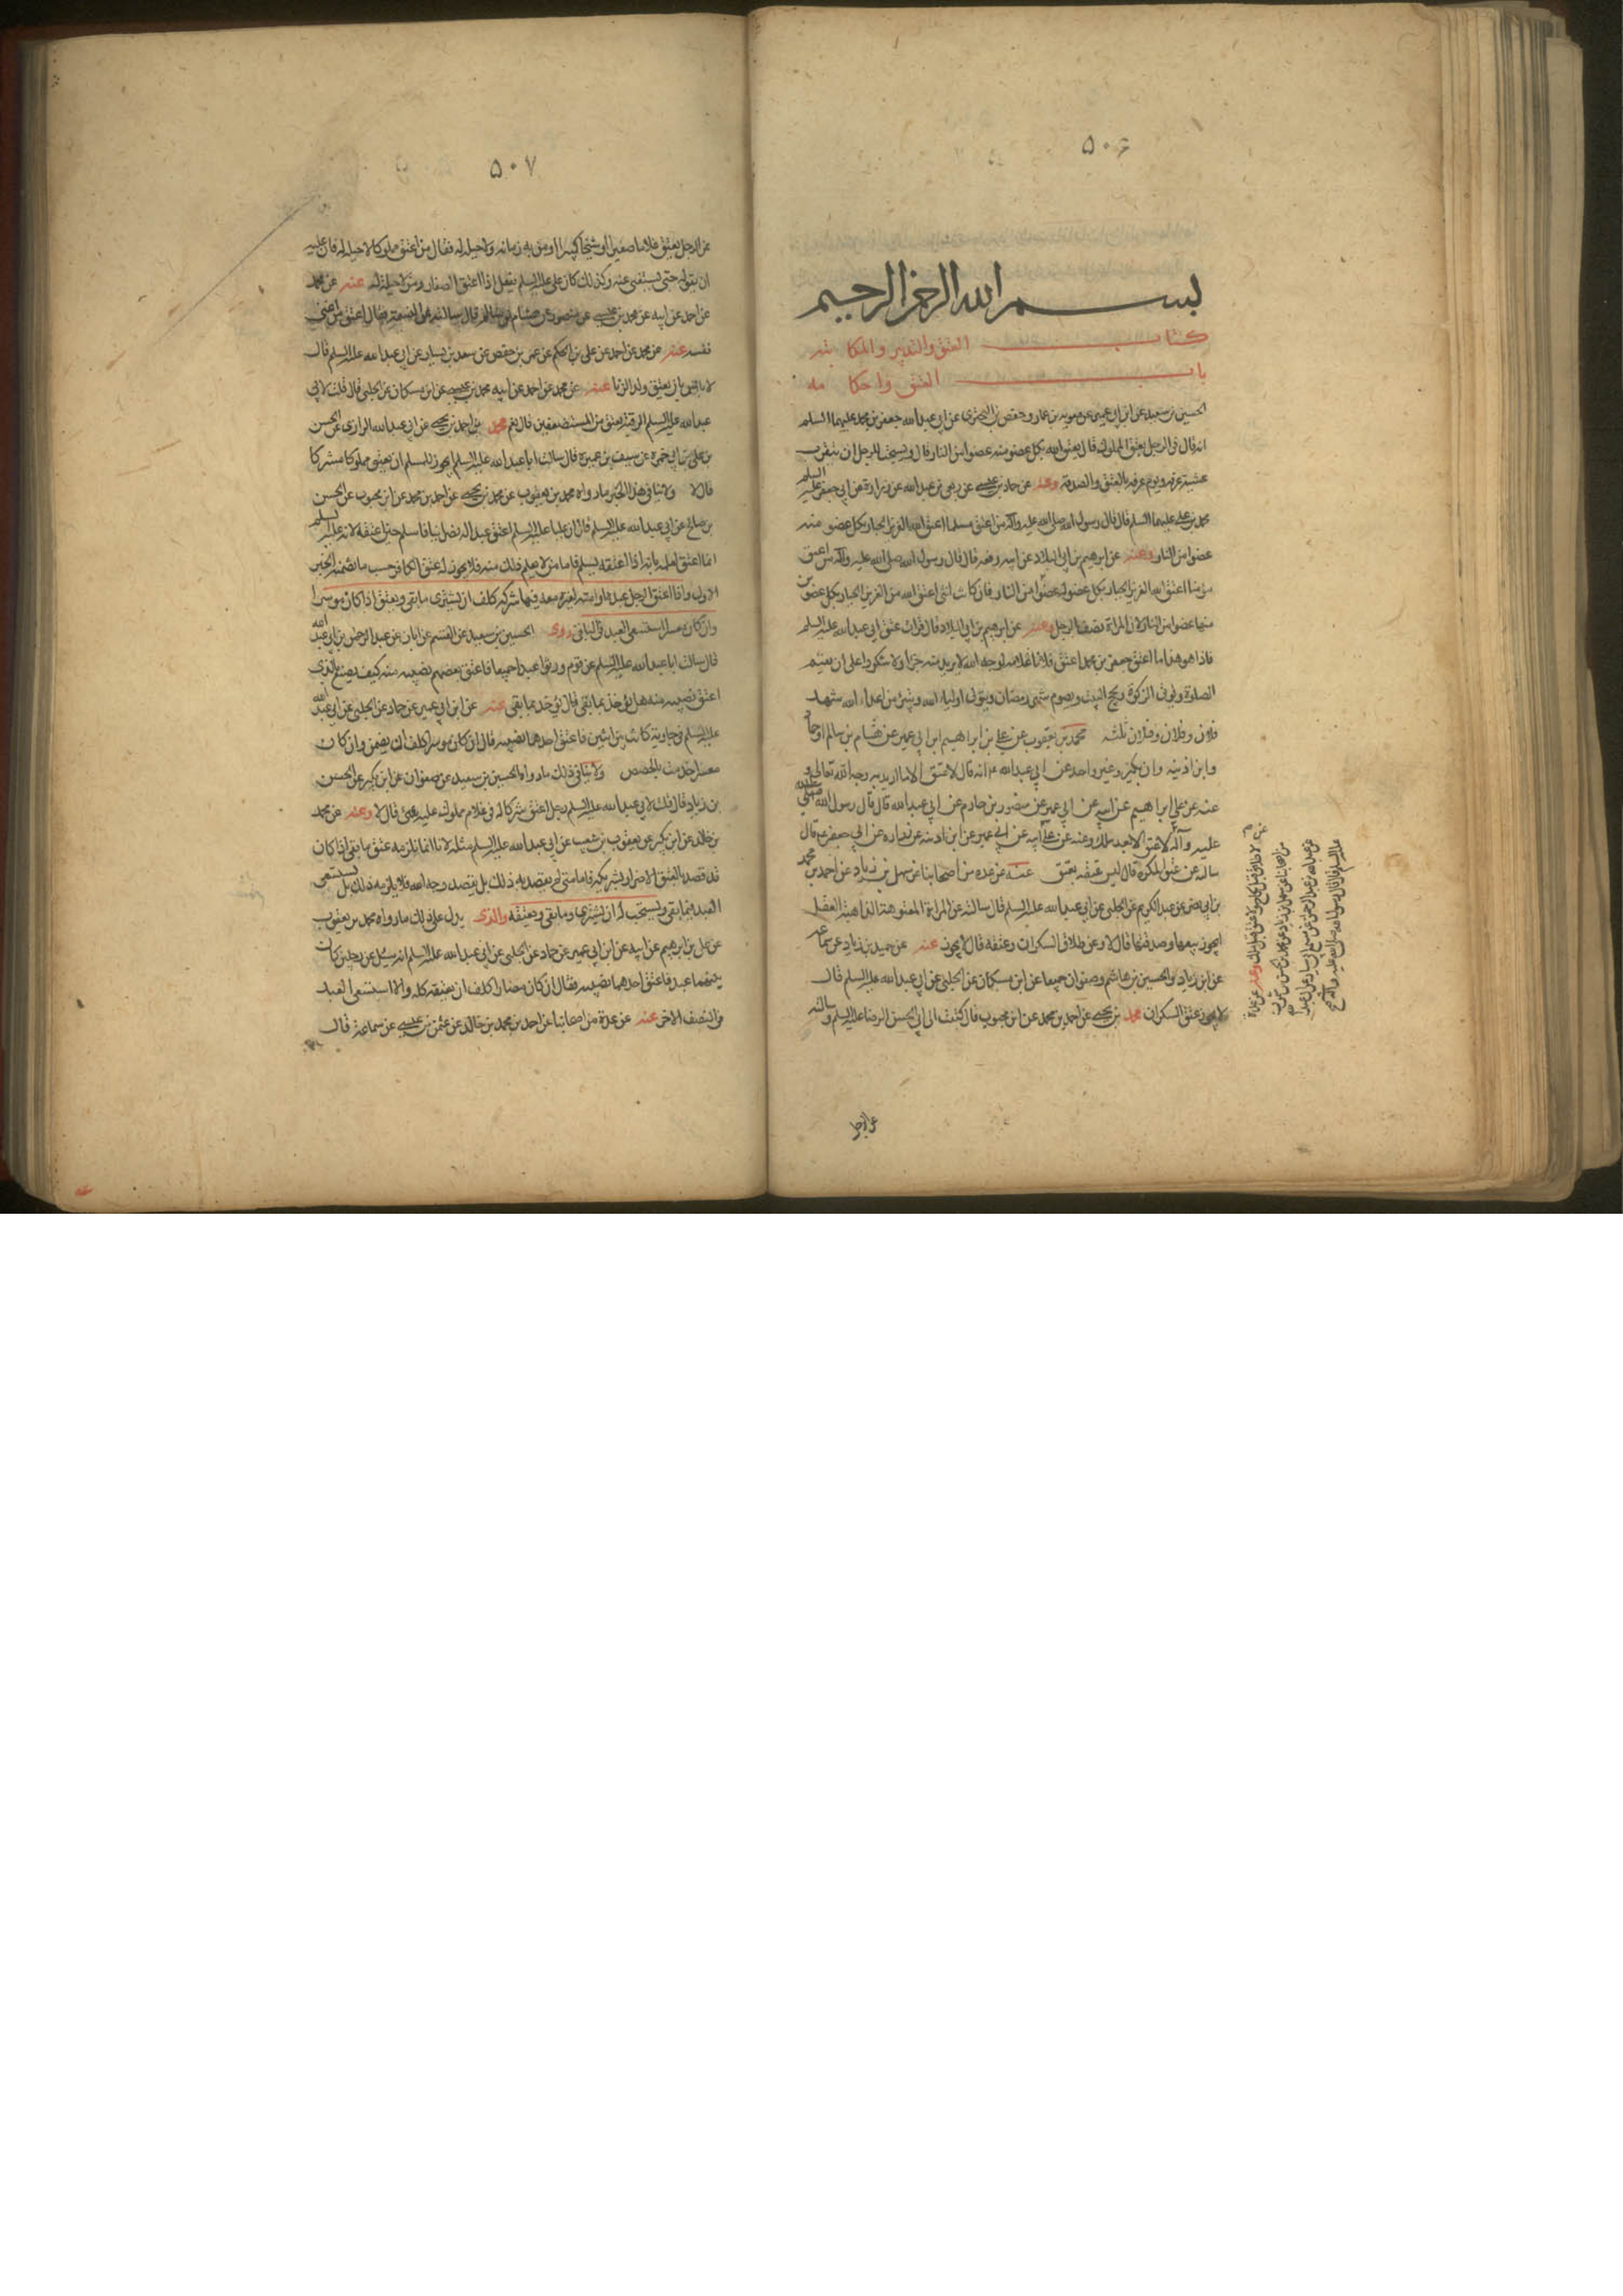 ۵۰۶
بسم الله الرحمن الرحيم
كتاب العتق والتدبير والمكاتبة
باب العتق واحكامه
الحسين بن سعيد عن ابن ابي عمير عن معوية بن عمار وحفص بن البختري عن ابي عبد الله جعفر بن محمد عليهما السلم
انه قال في الرجل يعتق المملوك قال يعتق الله بكل عضو منه عضوا من النار قال ويستحب للرجل ان يتقرب
عشية عرفة ويوم عرفة بالعتق والصدقة وعنه عن حماد بن عيسى عن ربعي بن عبد الله عن زرارة عن ابي جعفر عليه السلم
محمد بن علي عليهما السلم قال قال رسول الله صلى الله عليه وآله من اعتق مسلما اعتق الله العزيز الجبار بكل عضو منه
عضوا من النار وعنه عن ابرهيم بن ابي البلاد عن ابيه رفعه قال قال رسول الله صلى الله عليه وآله من اعتق
مؤمنا اعتق الله العزيز الجبار بكل عضو له عضوا من النار فان كانت انثى اعتق الله من العزيز الجبار بكل عضوين
منها عضوا من النار لان المراة نصف الرجل وعنه عن ابرهيم بن ابي البلاد قال قرات عتق ابي عبد الله عليه السلم
فاذا هو هذا ما اعتق جعفر بن محمد اعتق فلانا غلامه لوجه الله لا يريد منه جزاء ولا شكورا على ان يقيم
الصلوة ويوتى الزكوة ويحج البيت ويصوم شهر رمضان ويتولى اولياء الله ويتبرئ من اعداء الله شهد
فلان وفلان وفلان ثلثة محمد بن يعقوب عن علي بن ابراهيم ابن ابي عمير عن هشام بن سالم او حماد
وابن اذينه وابن بكير وغير واحد عن ابي عبد الله ع انه قال لا عتق الا ما اريد به وجه الله تعالى و
عنه عن علي ابراهيم عن ابيه عن ابي عمير عن منصور بن حازم عن ابي عبد الله قال قال رسول الله صلى الله
عليه وآله لا عتق الا بعد ملك وعنه عن علي ابيه عن ابي عمير عن ابن اذينه عن زراره عن ابي جعفر ع قال
سالته عن عتق المكره قال ليس عتقه بعتق عنه عن عده من اصحابنا عن سهل بن زياد عن احمد بن محمد
بن ابي نصر عن عبد الكريم عن الحلبي عن ابي عبد الله عليه السلم قال سالته عن المراة المعتوهة الذاهبة العقل
ايجوز بيعها وصدقتها قال لا وعن طلاق السكران وعتقه قال لا يجوز عنه عن حميد بن زياد عن سماعه
عن ابن زياد والحسين بن هاشم وصفوان جميعا عن ابن مسكان عن الحلبي عن ابي عبد الله عليه السلم قال
لا يجوز عتق السكران محمد بن يحيى عن احمد بن محمد عن ابن محبوب قال كتبت الى ابي الحسن الرضا عليه السلم وسالته
لا طلاق قبل نكاح ولا عتق قبل ملك وعنه عن عدة
من اصحابنا عن سهل بن زياد عن محمد بن الحسن بن شمون
عن عبد الله بن عبد الرحمن عن مسمع ابي سيار عن ابي عبد الله
عليه السلم قال قال رسول الله صلى الله عليه وآله
عن الرجل
۵۰۷
عن الرجل يعتق غلاما صغيرا او شيخا كبيرا او من به زمانة ولا حيلة له فقال من اعتق مملوكا لا حيلة له فان عليه
ان يعوله حتى يستغنى عنه وكذلك كان علي عليه السلم يفعل اذا اعتق الصغار ومن لا حيلة له عنه عن محمد
عن احمد عن ابيه عن محمد بن عيسى عن منصور عن هشام بن سالم قال سالته عن النسمة فقال اعتق من اغنى
نفسه عنه عن محمد عن احمد عن علي بن الحكم عن عمر بن حفص عن سعد بن يسار عن ابي عبد الله عليه السلم قال
لا باس بان يعتق ولد الزنا عنه عن محمد عن احمد عن ابيه محمد بن عيسى عن ابن مسكان عن الحلبي قال قلت لابي
عبد الله عليه السلم الرقبة تعتق من المستضعفين قال نعم محمد بن احمد بن يحيى عن ابي عبد الله الرازى عن الحسن
بن علي بن ابي حمزه عن سيف بن عميرة قال سالت ابا عبد الله عليه السلم ايجوز للمسلم ان يعتق مملوكا مشركا
قال لا ولا ينافي هذا الخبر ما رواه محمد بن يعقوب عن محمد بن يحيى عن احمد بن محمد عن ابن محبوب عن الحسن
بن صالح عن ابي عبد الله عليه السلم قال ان عليا عليه السلم اعتق عبدا له نصرانيا فاسلم حين اعتقه لانه عليه السلم
انما اعتق لعلمه بانه اذا اعتقه يسلم فاما من لا يعلم ذلك منه فلا يجوز له عتق الكافر حسب ما تضمنه الخبر
الاول واذا اعتق الرجل عبدا او امة لغيره معه فيها شركة كلف ان يشترى ما بقى ويعتق اذا كان موسرا
وان كان معسرا استسعى العبد في الباقى روى الحسين بن سعيد عن القسم عن ابان عن عبد الرحمن بن ابي عبد الله
قال سالت ابا عبد الله عليه السلم عن قوم ورثوا عبدا جميعا فاعتق بعضهم نصيبه منه كيف يصنع بالذى
اعتق نصيبه منه هل يؤخذ بما بقى قال يؤخذ بما بقى عنه عن ابن ابي عمير عن حماد عن الحلبي عن ابي عبد الله
عليه السلم في جارية كانت بين اثنين فاعتق احدهما نصيبه قال ان كان موسرا كلف ان يضمن وان كان
معسرا خدمت بالحصص ولا ينافى ذلك ما رواه الحسين بن سعيد عن صفوان عن ابن بكير عن الحسن
بن زياد قال قلت لابي عبد الله عليه السلم رجل اعتق شركا له في غلام مملوك عليه شئ قال لا وعنه عن محمد
بن خالد عن ابن بكير عن يعقوب بن شعيب عن ابي عبد الله عليه السلم مثله لانا انما نلزمه عتق ما بقى اذا كان
قد قصد بالعتق الاضرار بشريكه فاما متى لم يقصد به ذلك بل يقصد وجه الله فلا يلزمه ذلك بل يستسعى
العبد فيما بقى ويستحب له ان يشترى وما بقى ويعتقه والذى يدل على ذلك ما رواه محمد بن يعقوب
عن علي بن ابرهيم عن ابيه عن ابن ابي عمير عن حماد عن الحلبي عن ابي عبد الله عليه السلم انه سئل عن رجلين كان
بينهما عبد فاعتق احدهما نصيبه فقال ان كان مضارا كلف ان يعتقه كله والا استسعى العبد
في النصف الاخر عنه عن عدة من اصحابنا عن احمد بن محمد بن خالد عن عثمن بن عيسى عن سماعة قال